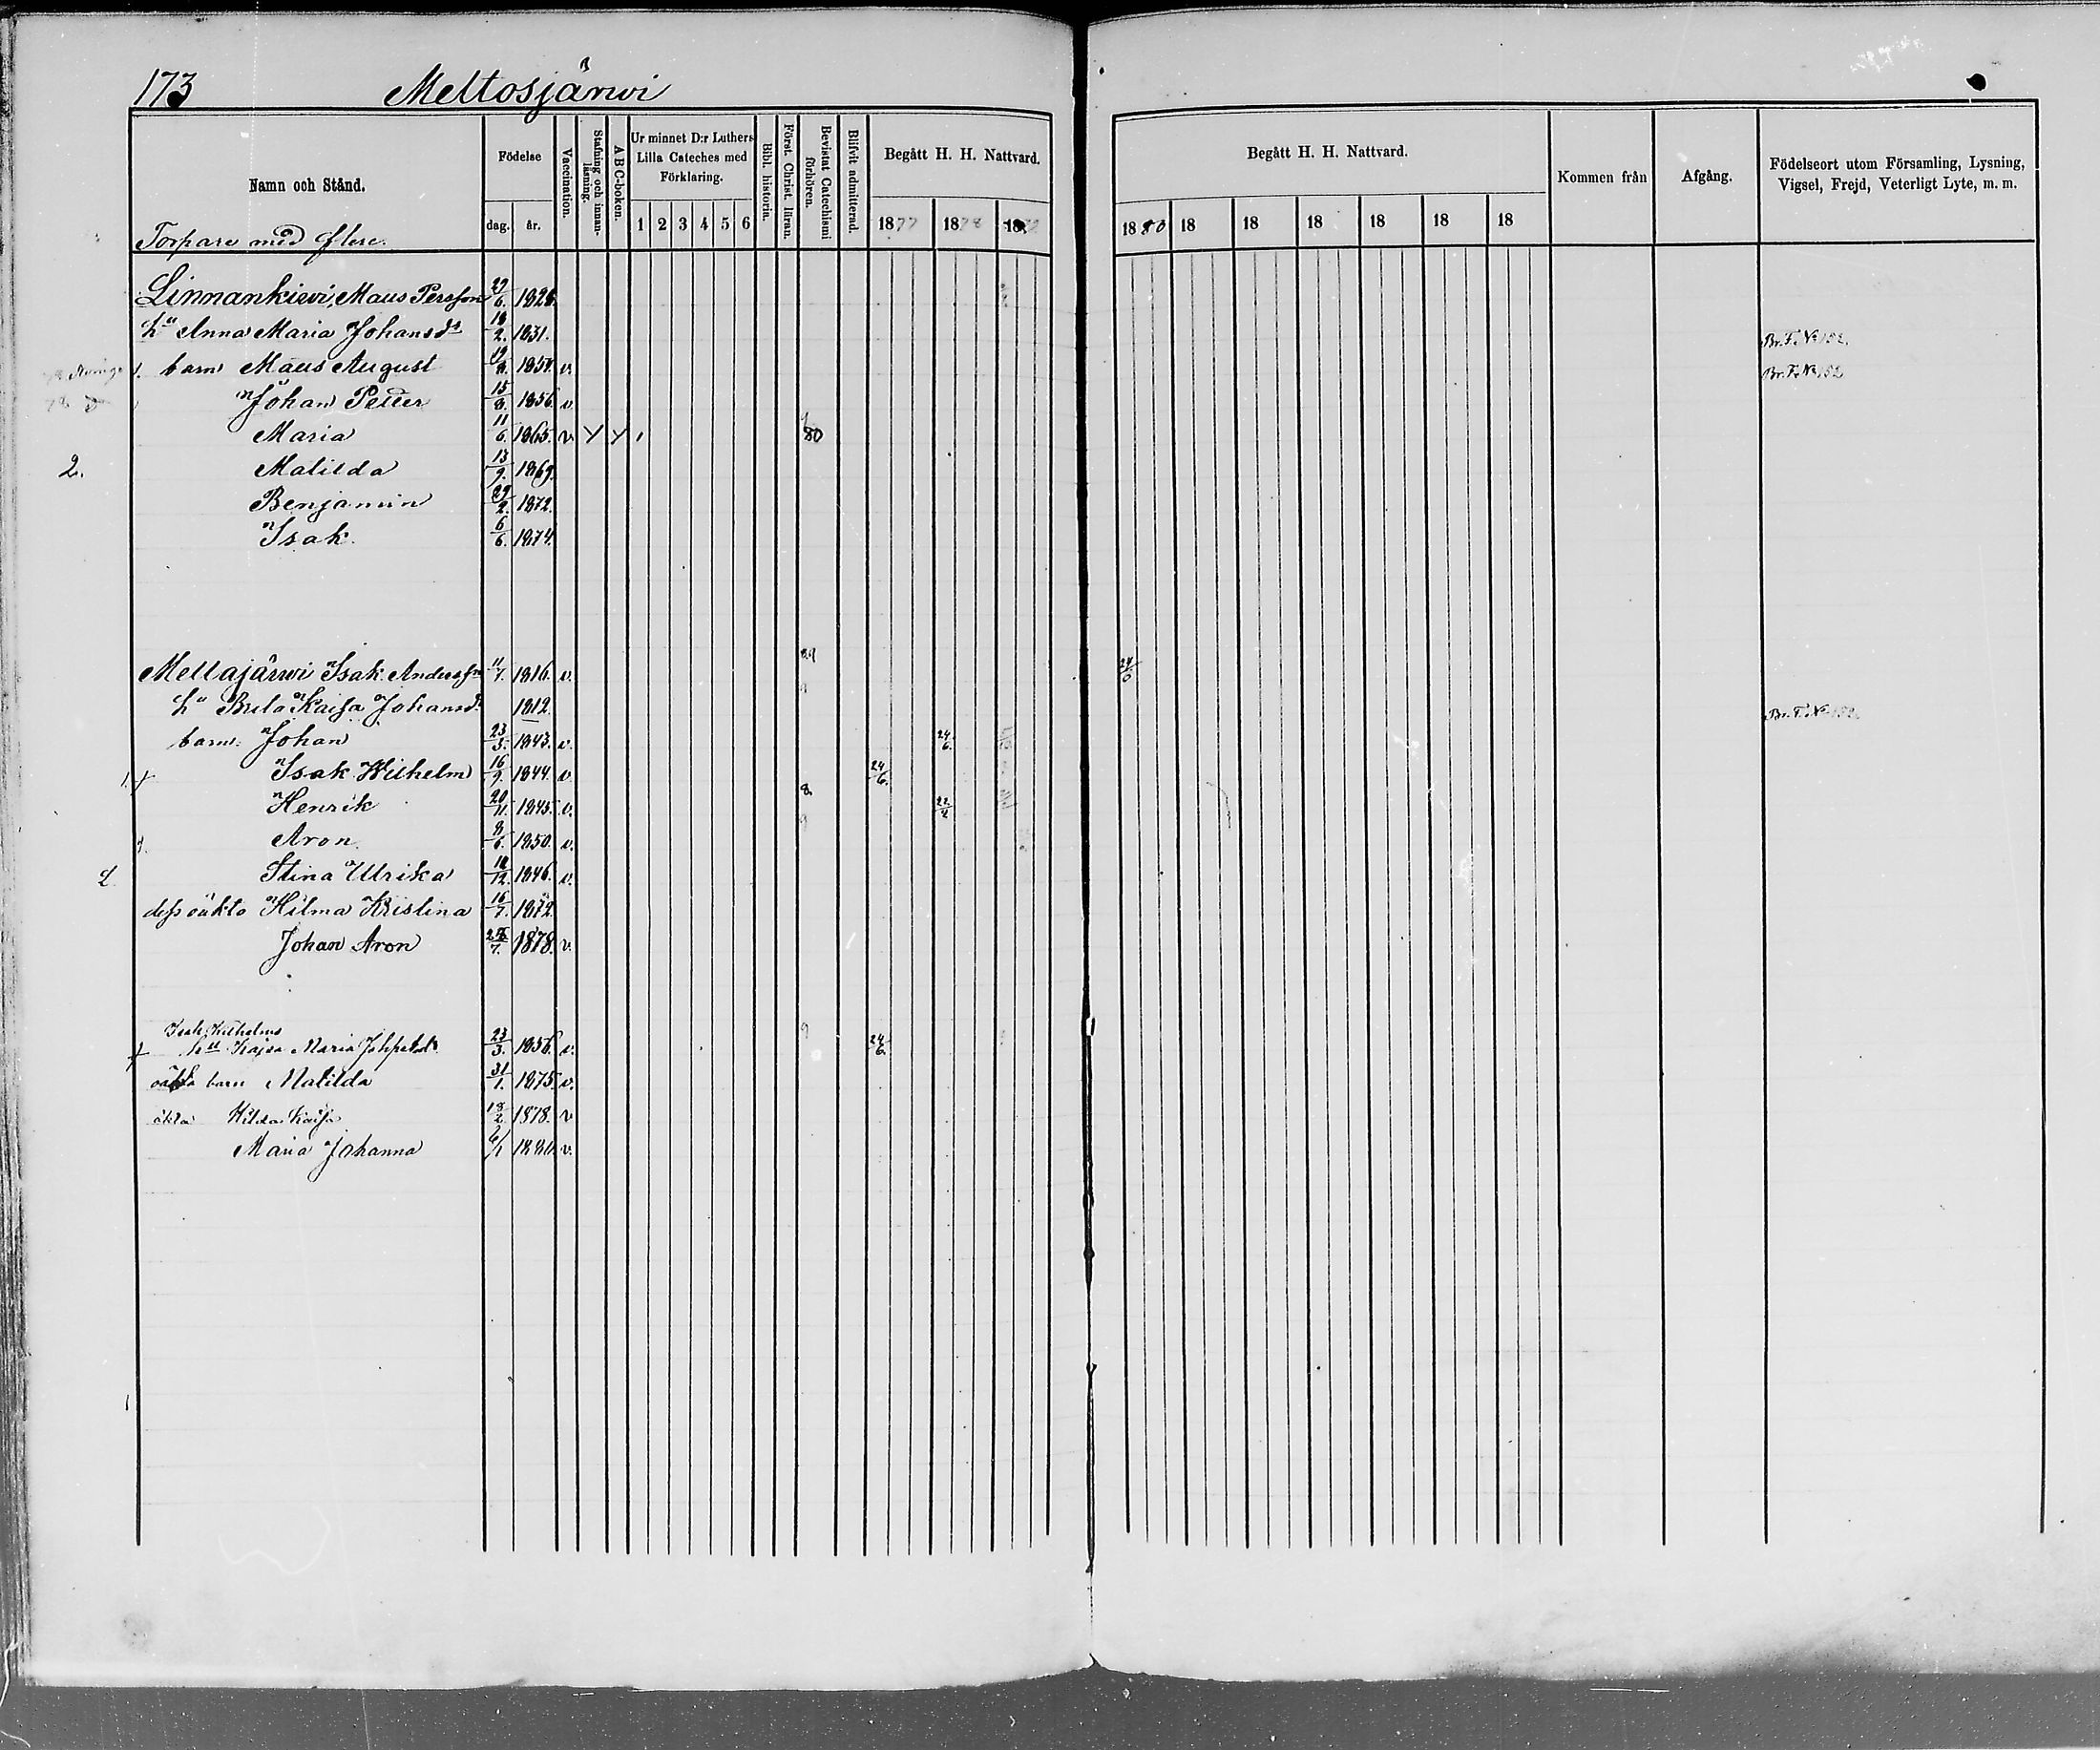 173 Meltosjärwi
Namn och Stånd.
Födelse
dag. år.
Vaccination.
Stafning och innanläsning.
A B C-boken.
Ur minnet D:r Luthers Lilla Cateches med Förklaring.
1 2 3 4 5 6
Bibl. historia.
Först. Christ. läran.
Bevistat Catechismi förhören.
Blifvit admitterad.
Begått H. H. Nattvard.
1877 1878
Begått H. H. Nattvard.
1880 18 18 18 18 18 18
Kommen från
Afgång.
Födelseort utom Församling, Lysning, Vigsel, Frejd, Veterligt Lyte, m. m.
Torpare med flere.
Linnankiwi, Maus Persson 29/6. 1828.
hu Anna Maria Johansdr 18/2. 1831. Br. F. No 152.
barn Maus August 19/8. 1854. v. Br. F. No 152
Johan Petter 15/8. 1856. v.
Maria 11/6. 1865. v. 80
2. Matilda 13/9. 1869.
Benjamin 29/2. 1872.
Isak. 6/6. 1874.
Meltajärwi Isak Andersson 11/7. 1816. v.
hu Brita Kaisa Johansdr 1812. Br. F. No 152.
barn: Johan 23/5. 1843. v. 24/6.
Isak Wilhelm 16/9. 1844. v. 24/6.
Henrik 20/11. 1845. v. 22/2
Aron. 8/6. 1850. v.
Stina Ulrika 18/12. 1846. v.
dess oäkta Hilma Kristina 16/7. 1872.
Johan Aron 1878. v.
Isak Wilhelms
hu Kajsa Maria 23/3. 1856. v. 24/6.
oäkta barn Matilda 31/1. 1875. v.
äkta Hilda Kaisa 18/2. 1878. v
Maria Johanna 6/1 1880. v.